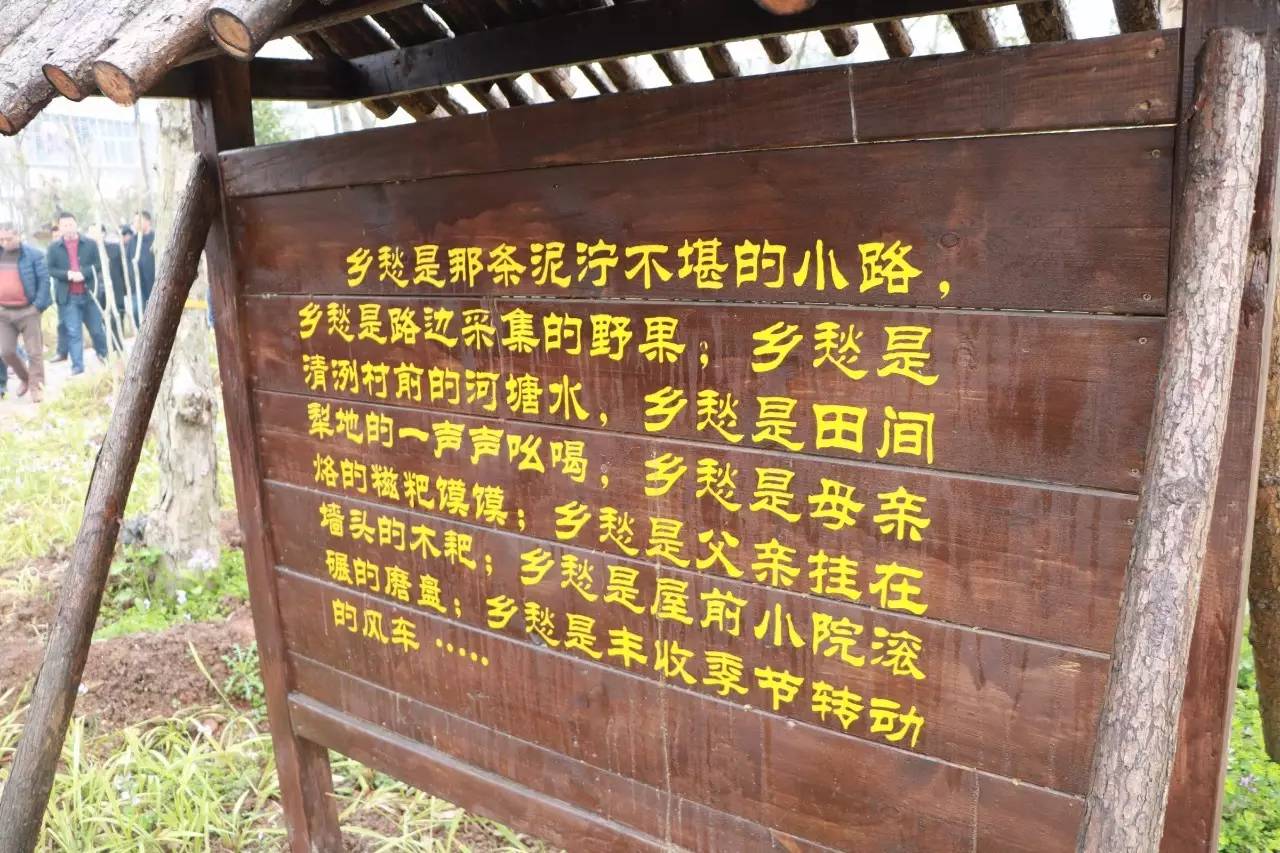 乡愁是那条泥泞不堪的小路，
乡愁是路边采集的野果；乡愁是
清洌村前的河塘水，乡愁是田间
犁地的一声声吆喝，乡愁是母亲
烙的糍粑馍馍；乡愁是父亲挂在
墙头的木耙；乡愁是屋前小院滚
碾的磨盘；乡愁是丰收季节转动
的风车 ·····